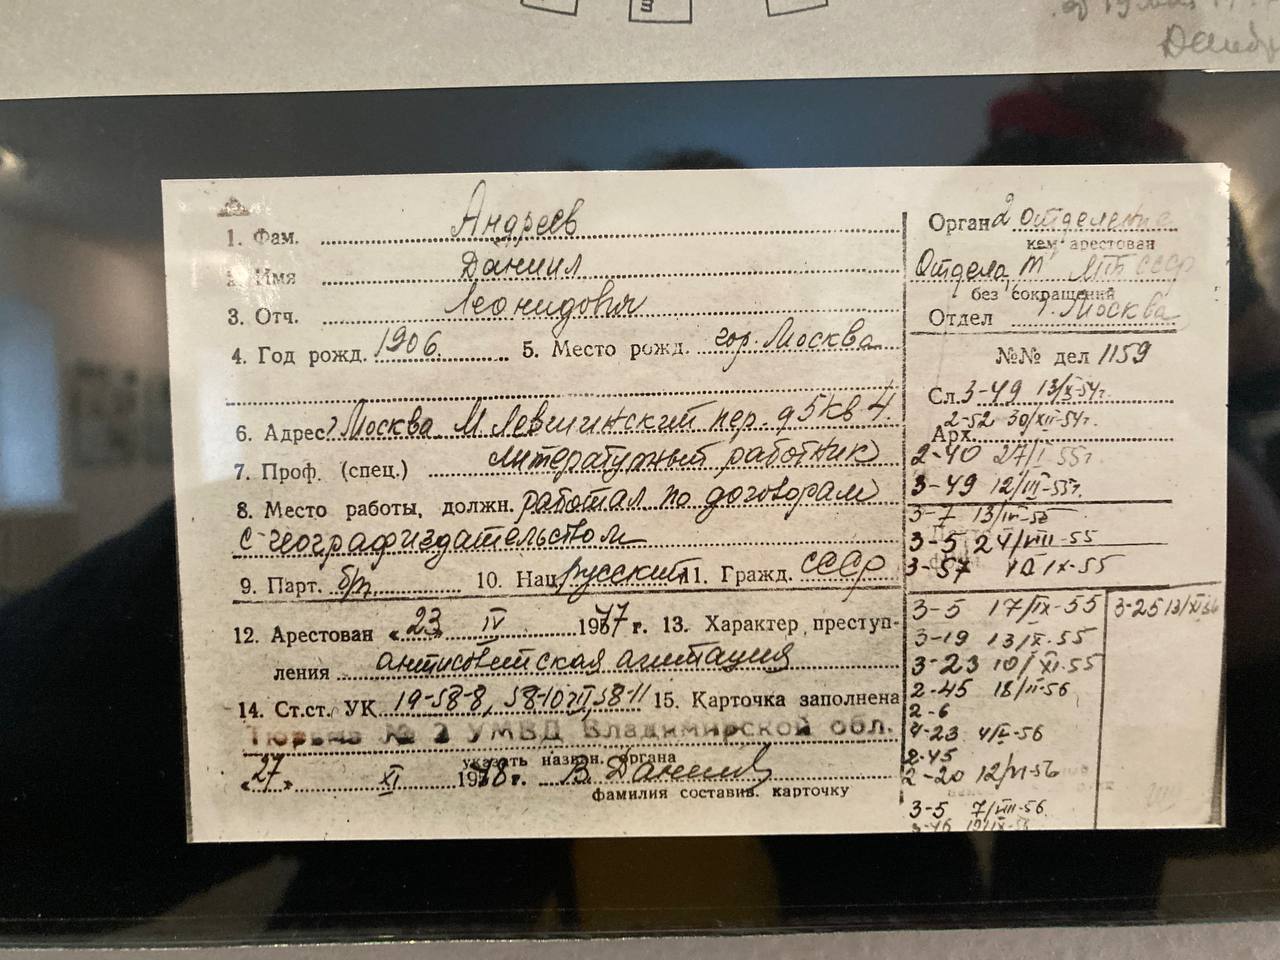 1. Фам. Андреев
2. Имя Даниил
3. Отч. Леонидович
4. Год рожд. 1906 5. Место рожд. гор. Москва
6. Адрес г. Москва М Левшинский пер. д5 кв 4.
7. Проф. (спец.) литературный работник
8. Место работы, должн. работал по договорам
с географиздательством
9. Парт. б/п 10. Нац. русский 11. Гражд. СССР
12. Арестован «23» IV 1947 г. 13. Характер преступ-
ления антисоветская агитация
14. Ст.ст. УК 19-58-8, 58-10 ч II, 58-11 15. Карточка заполнена
Тюрьма № 2 УМВД Владимирской обл.
указать назван. органа
«27» XI 1948 г.
фамилия составив. карточку
Орган 2 отделение
кем арестован
Отдела "Т" МГБ СССР
без сокращений
Отдел г. Москва
№№ дел 1159
Сл. 3-49 13/X-54г.
2-52 30/XII-54г.
Арх.
2-40 27/I-55г
3-49 12/III-55г.
3-7
3-5 24/VIII-55
3-57 10 IX-55
3-5 17/IX-55 3-25 13/XI 56
3-19 13/X-55
3-23 10/XI-55
2-45 18/II-56
2-6
4-23 4/V-56
2-45
2-20 12/VI-56
3-5 7/VIII-56